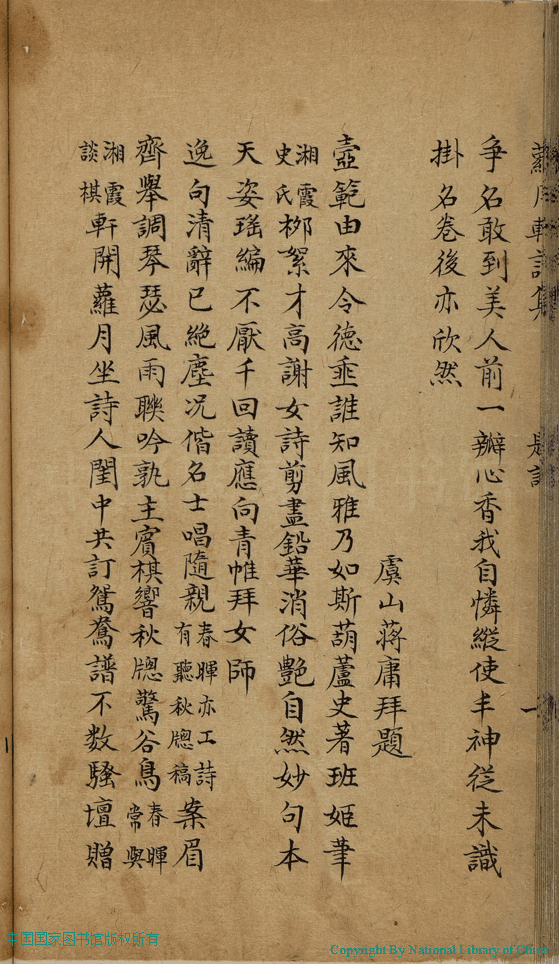 蘿月軒詩集
爭名敢到美人前一瓣心香我自憐縱使丰神從未識
掛名卷後亦欣然
虞山蔣庸拜題
壼範由來令德垂誰知風雅乃如斯葫蘆史著班姬筆
湘霞史氏柳絮才高謝女詩剪盡鉛華消俗艷自然妙句本
天姿瑤編不厭千回讀應向青帷拜女師
逸句清辭已絕塵况偕名士唱隨親春暉亦工詩有聽秋牕稿案眉
齊舉調琴瑟風雨聯吟孰主賓棋響秋牕驚谷鳥春暉常與
湘霞談棋軒開蘿月坐詩人閨中共訂鴛鴦譜不数騷壇贈
中国国家图书馆版权所有
Copyright By National Library of China